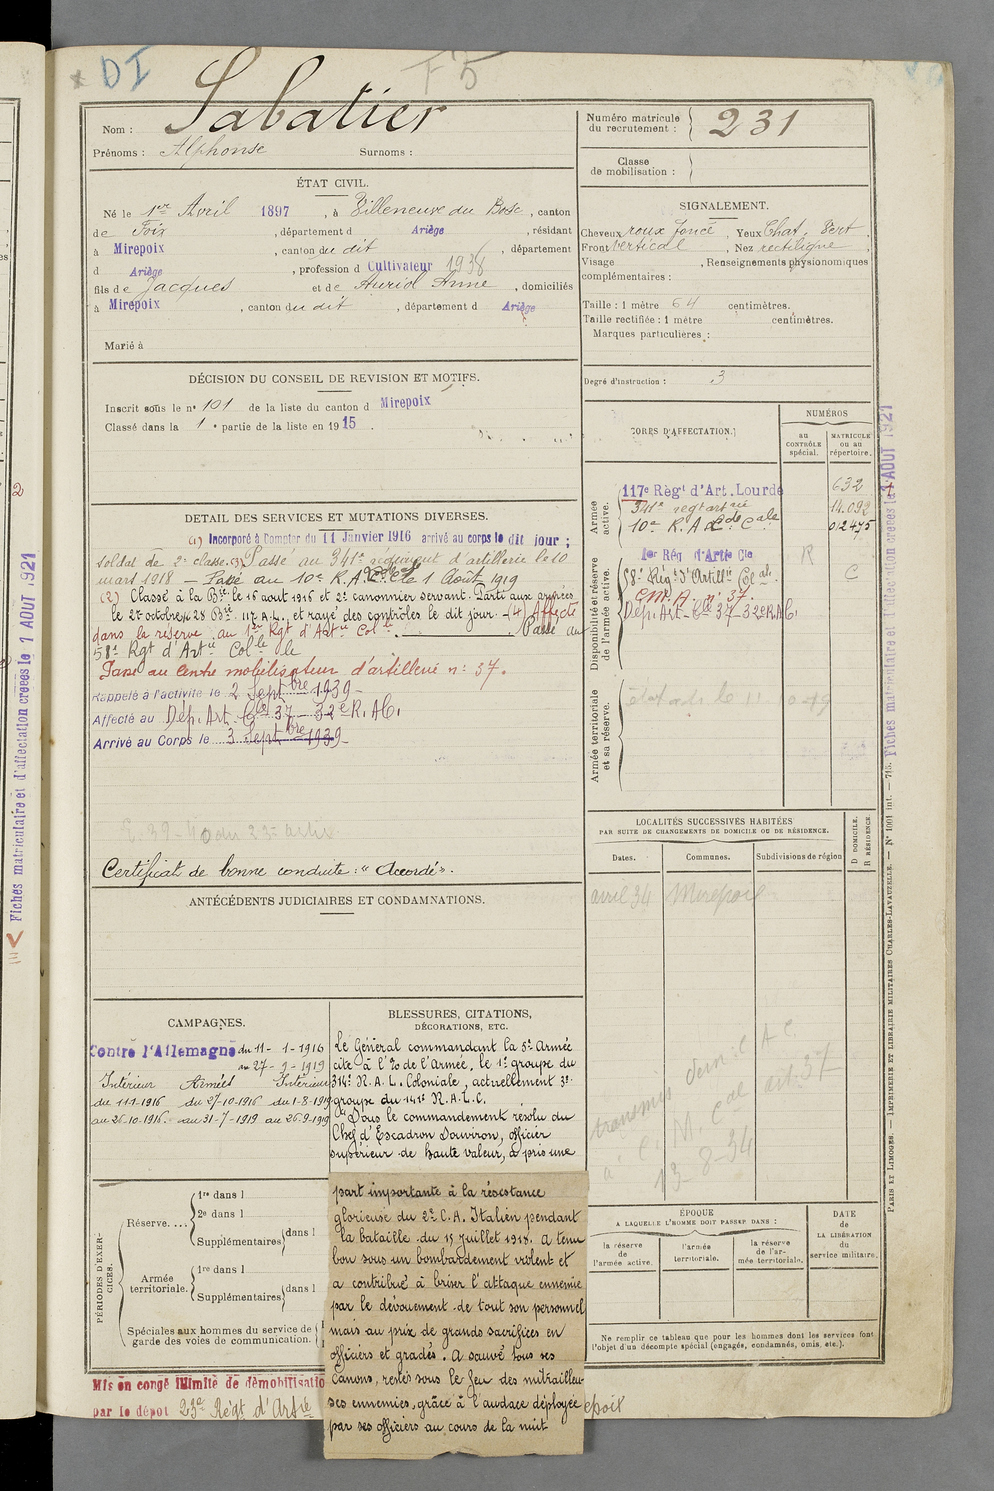 DI
F5
Nom : Sabatier
Prénoms : Alphonse Surnoms :
Numéro matricule
du recrutement : 231
Classe
de mobilisation :
ÉTAT CIVIL.
Né le 1er Avril 1897, à Villeneuve du Bosc, canton
de Foix, département d Ariège, résidant
à Mirepoix, canton du dit, département
d Ariège, profession d Cultivateur 1938
fils de Jacques et de Auriol Anne, domiciliés
à Mirepoix, canton du dit, département d Ariège
Marié à
SIGNALEMENT.
Cheveux roux foncé, Yeux Chat. Vert,
Front vertical, Nez rectiligne,
Visage , Renseignements physionomiques
complémentaires :
Taille : 1 mètre 64 centimètres.
Taille rectifiée : 1 mètre centimètres.
Marques particulières :
Degré d'instruction : 3
DÉCISION DU CONSEIL DE REVISION ET MOTIFS.
Inscrit sous le n° 101 de la liste du canton d Mirepoix
Classé dans la 1e partie de la liste en 1915.
CORPS D'AFFECTATION.
NUMÉROS
au CONTRÔLE spécial.
MATRICULE ou au répertoire.
Armée active.
117e Règt d'Art. Lourde 632
341e regt art rie 14.092
10e R.A. Cale 012475
Disponibilité et réserve de l'armée active.
1er Rég. d'Artie Cle R
58e Régt d'Artillie Colale C
C.M.A. n° 37.
Dép. Art. Cle 37 - 32e R.A.C.
Armée territoriale et sa réserve.
DETAIL DES SERVICES ET MUTATIONS DIVERSES.
(1) Incorporé à Compter du 11 Janvier 1916 arrivé au corps le dit jour ;
soldat de 2e classe. (3) Passé au 341e régiment d'artillerie le 10
mars 1918 — Passé au 10e R.A. Cle 1 Août 1919
(2) Classé à la Bie le 16 aout 1916 et 2e canonnier servant. Parti aux armées
le 27 octobre 28 Bie 117 A.L. et rayé des contrôles le dit jour. (4) Affecté
dans la réserve au 1er Rgt d'Artie Colle. Passé au
58e Rgt d'Artie Colle le
Passé au Centre mobilisateur d'artillerie n° 37.
Rappelé à l'activité le 2 Septbre 1939
Affecté au Dép. Art. Cle 37 - 32e R.A.C.
Arrivé au Corps le 3 Septbre 1939
Certificat de bonne conduite : "Accordé".
ANTÉCÉDENTS JUDICIAIRES ET CONDAMNATIONS.
LOCALITÉS SUCCESSIVES HABITÉES
PAR SUITE DE CHANGEMENTS DE DOMICILE OU DE RÉSIDENCE.
Dates. Communes. Subdivisions de région
D DOMICILE. R RÉSIDENCE.
avril 34 Mirepoix
transmis
à C. M. Cal art. 37
13-8-34
CAMPAGNES.
Contre l'Allemagne du 11-1-1916
au 27-9-1919
Intérieur Armées Intérieur
du 11-1-1916 du 27-10-1916 du 1-8-1919
au 26-10-1916. au 31-7-1919 au 26-9-1919
BLESSURES, CITATIONS,
DÉCORATIONS, ETC.
Le Général commandant la 5e Armée
cite à l'O de l'Armée, le 1er groupe du
314e R.A.L. Coloniale, actuellement 3e
groupe du 141e R.A.L.C.
"Sous le commandement résolu du
Chef d'Escadron Douviron, officier
supérieur de haute valeur, a pris une
part importante à la résistance
glorieuse du 2e C.A. Italien pendant
la bataille du 15 juillet 1918. A tenu
bon sous un bombardement violent et
a contribué à briser l'attaque ennemie
par le dévouement de tout son personnel
mais au prix de grands sacrifices en
officiers et gradés. A sauvé tous ses
canons, restés sous le feu des mitrailleu-
ses ennemies, grâce à l'audace déployée
par ses officiers au cours de la nuit
PÉRIODES D'EXERCICES.
Réserve....
1re dans l
2e dans l
Supplémentaires dans l
Armée territoriale.
1re dans l
Supplémentaires dans l
Spéciales aux hommes du service de
garde des voies de communication.
ÉPOQUE
A LAQUELLE L'HOMME DOIT PASSER DANS :
la réserve de l'armée active.
l'armée territoriale.
la réserve de l'armée territoriale.
DATE DE LA LIBÉRATION du service militaire.
Ne remplir ce tableau que pour les hommes dont les services font
l'objet d'un décompte spécial (engagés, condamnés, omis, etc.).
Mis en congé illimité de démobilisatio
par le dépôt 23e Regt d'Artie
epoix
Fiches matriculaire et d'affectation créées le 1 AOUT 1921
PARIS ET LIMOGES. — IMPRIMERIE ET LIBRAIRIE MILITAIRES CHARLES-LAVAUZELLE. — N° 1001 int. — 715.
Fiches matriculaire et d'affectation créées le 1 AOUT 1921